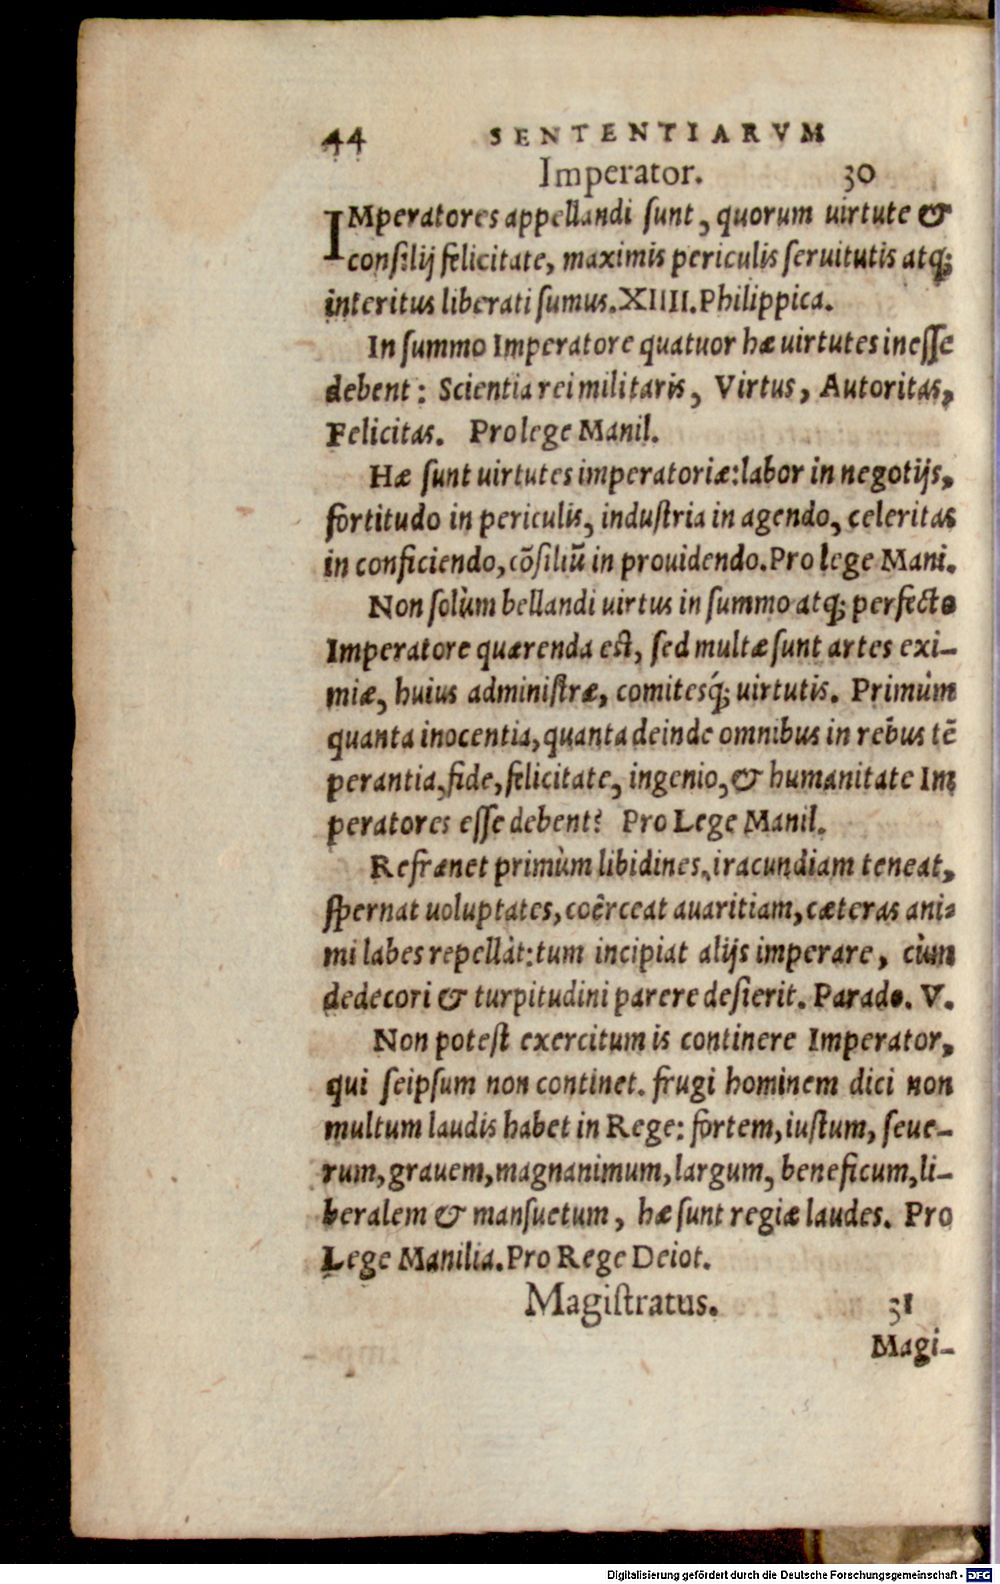 44 SENTENTIARVM
Imperator. 30
IMperatores appellandi sunt, quorum uirtute &
consilij felicitate, maximis periculis seruitutis atq;
interitus liberati sumus. XIIII. Philippica.
In summo Imperatore quatuor hæ uirtutes inesse
debent: Scientia rei militaris, Virtus, Autoritas,
Felicitas. Pro lege Manil.
Hæ sunt uirtutes imperatoriæ: labor in negotijs,
fortitudo in periculis, industria in agendo, celeritas
in conficiendo, cõsiliũ in prouidendo. Pro lege Mani.
Non solùm bellandi uirtus in summo atq; perfecto
Imperatore quærenda est, sed multæ sunt artes exi-
miæ, huius administræ, comitesq́; uirtutis. Primùm
quanta inocentia, quanta deinde omnibus in rebus tẽ
perantia, fide, felicitate, ingenio, & humanitate Im
peratores esse debent? Pro Lege Manil.
Refrænet primùm libidines, iracundiam teneat,
spernat uoluptates, coêrceat auaritiam, cæteras ani-
mi labes repellàt: tum incipiat alijs imperare, cùm
dedecori & turpitudini parere desierit. Parado. V.
Non potest exercitum is continere Imperator,
qui seipsum non continet. frugi hominem dici non
multum laudis habet in Rege: fortem, iustum, seue-
rum, grauem, magnanimum, largum, beneficum, li-
beralem & mansuetum, hæ sunt regiæ laudes. Pro
Lege Manilia. Pro Rege Deiot.
Magistratus. 31
Magi-
Digitalisierung gefördert durch die Deutsche Forschungsgemeinschaft - DFG